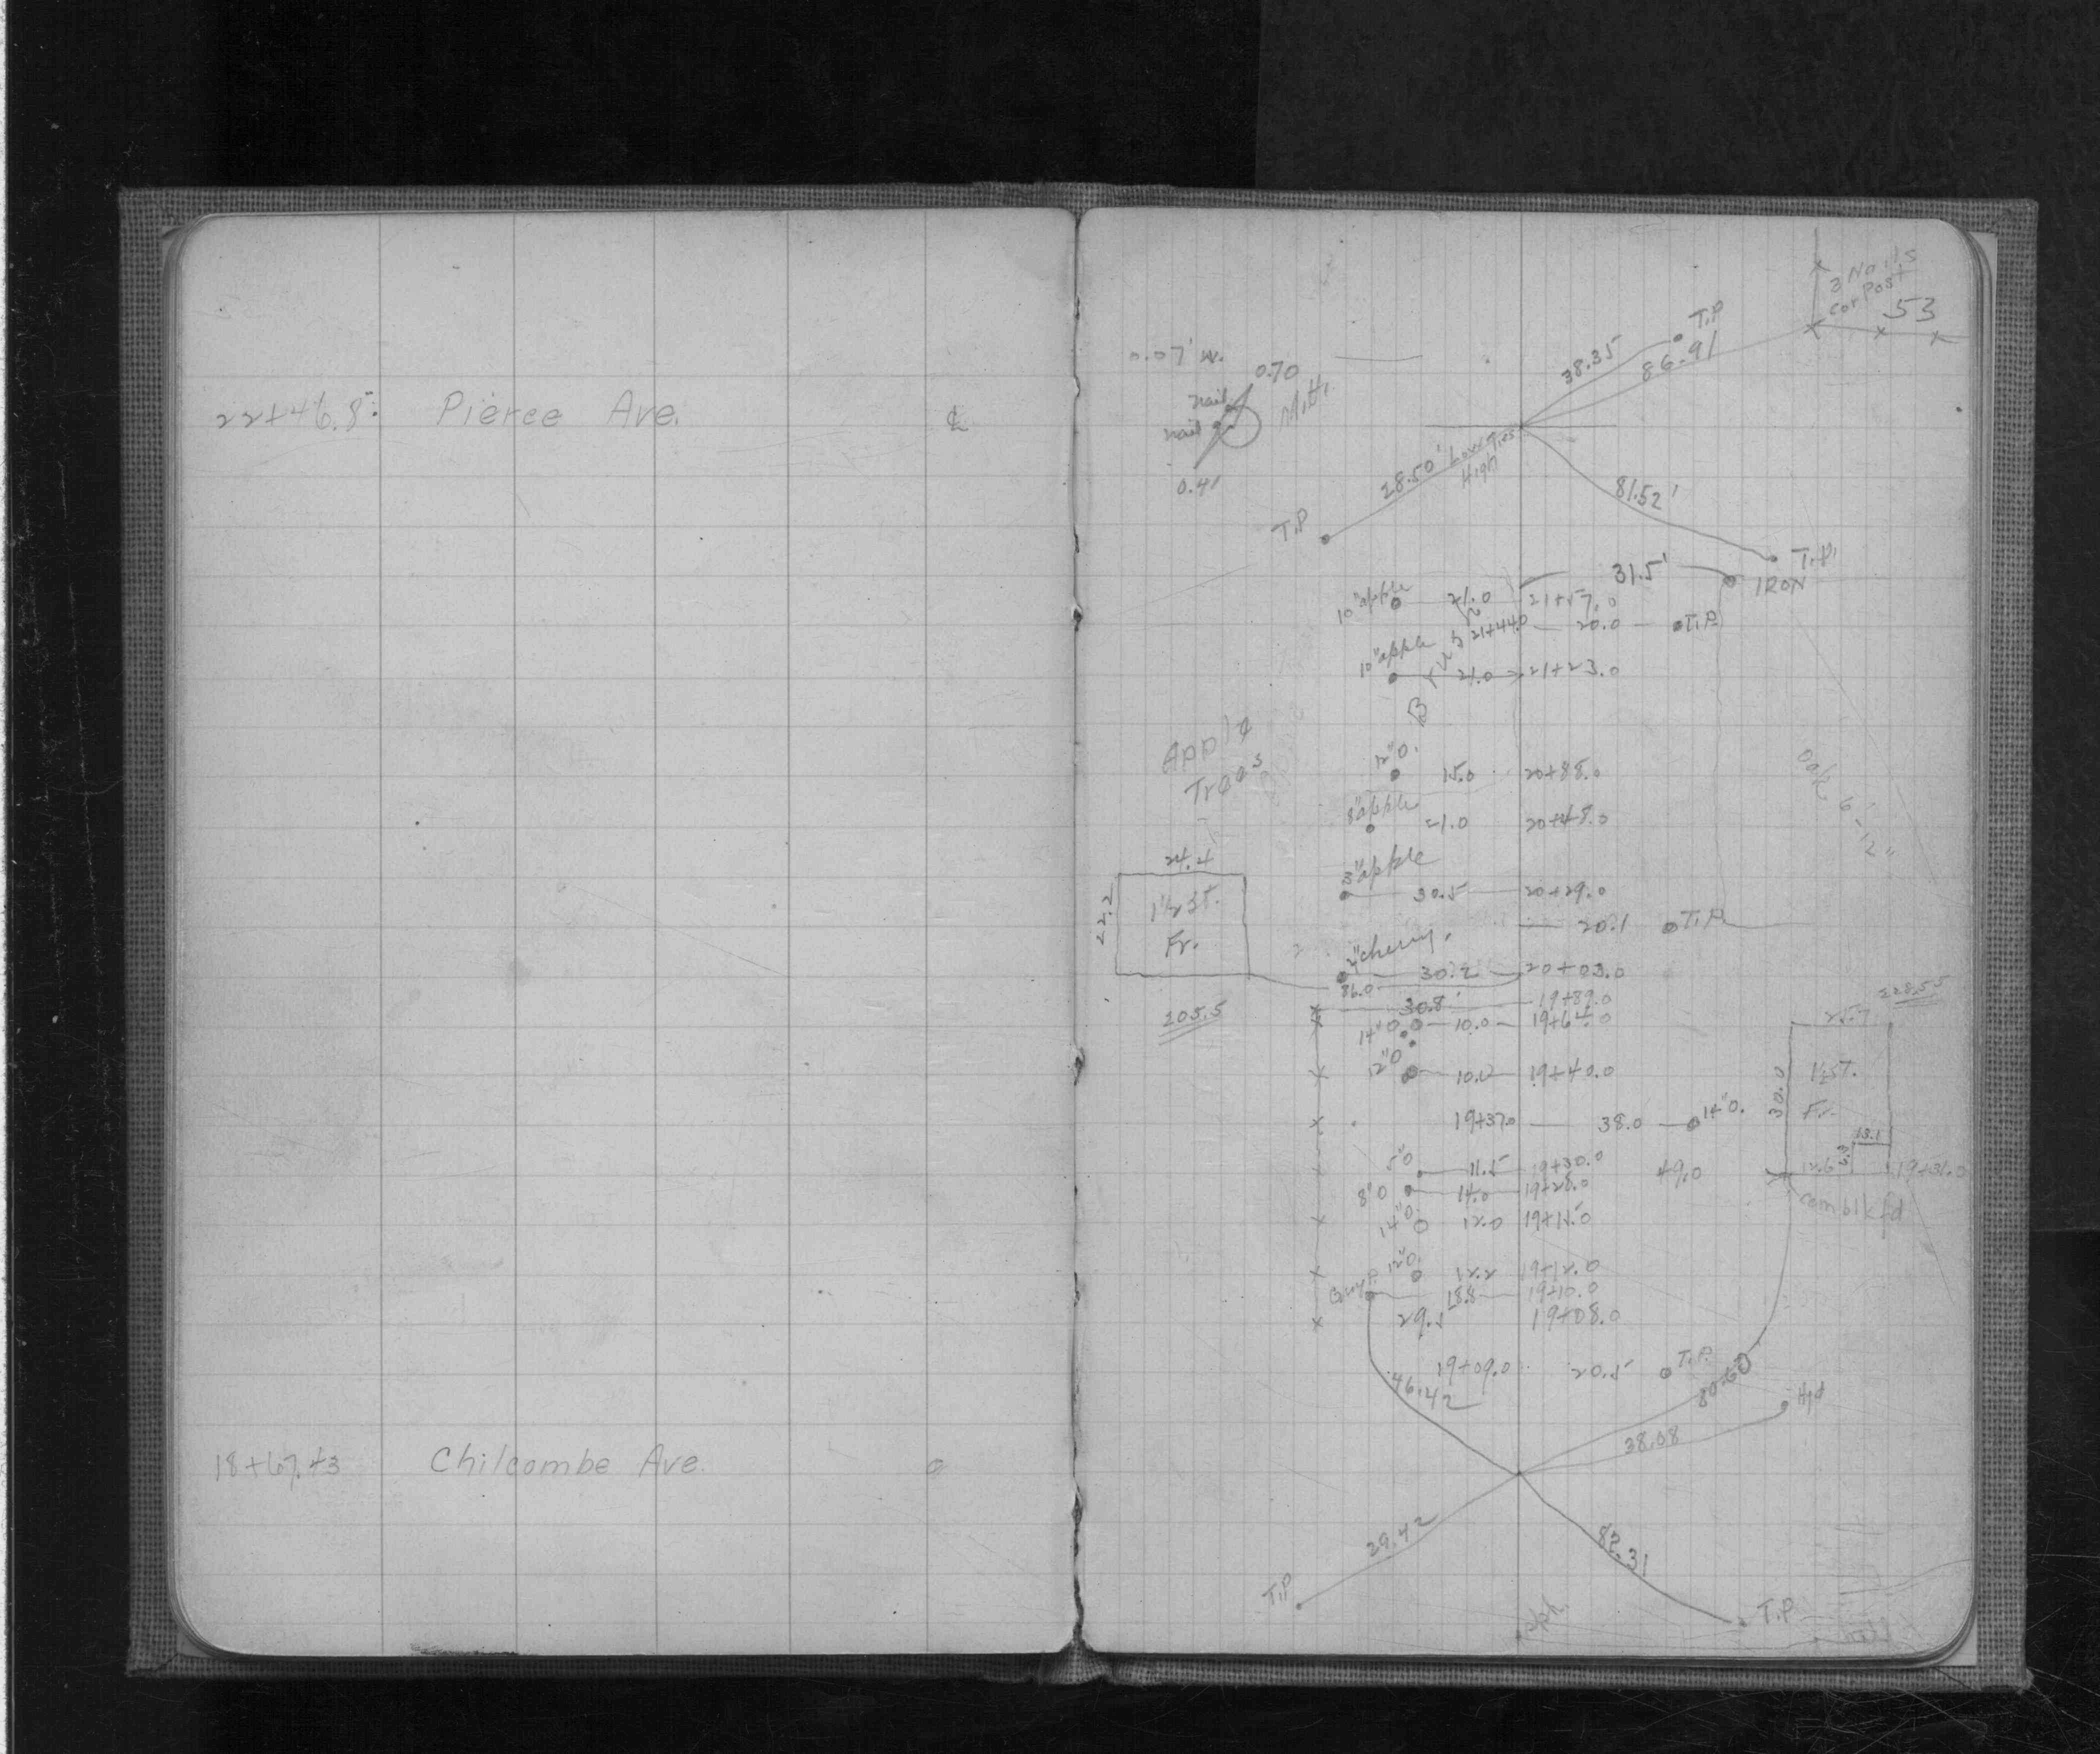 22+46.85 Pierce Ave. ℄
18+67.43 Chilcombe Ave. 0
3 Nails
cor Post
53
T.P
38.35
86.91
0.07' W.
0.70
nail
M.H.
nail
0.41
28.50'
High
81.52'
T.P
T.P.
31.5'
IRON
10"apple 21.0 21+57.0
21+44.0 20.0 T.P.
10"apple 21.0 21+23.0
B
Apple
Trees
12"O. 15.0 20+88.0
Oak 6"-12"
8"apple 21.0 20+48.0
24.4
3"apple 30.5 20+29.0
22.2
1½ St.
Fr.
20.1 T.P.
2"cherry. 30.2 20+03.0
86.0
30.8' 19+89.0
205.5
14"O 10.0 19+64.0
228.55
25.7
12"O 10.0 19+40.0
30.0
1½ST.
Fr.
19+37.0 38.0 14"O.
13.1
5"O 11.5 19+30.0
49.0
12.6
19+31.0
8"O 14.0 19+28.0
comblkfd
14"O. 12.0 19+15.0
12"O. 12.2 19+12.0
Guy P. 18.8 19+10.0
29.5 19+08.0
19+09.0 20.5 T.P.
46.42
80.60
Hyd
38.08
29.42
82.31
T.P
T.P